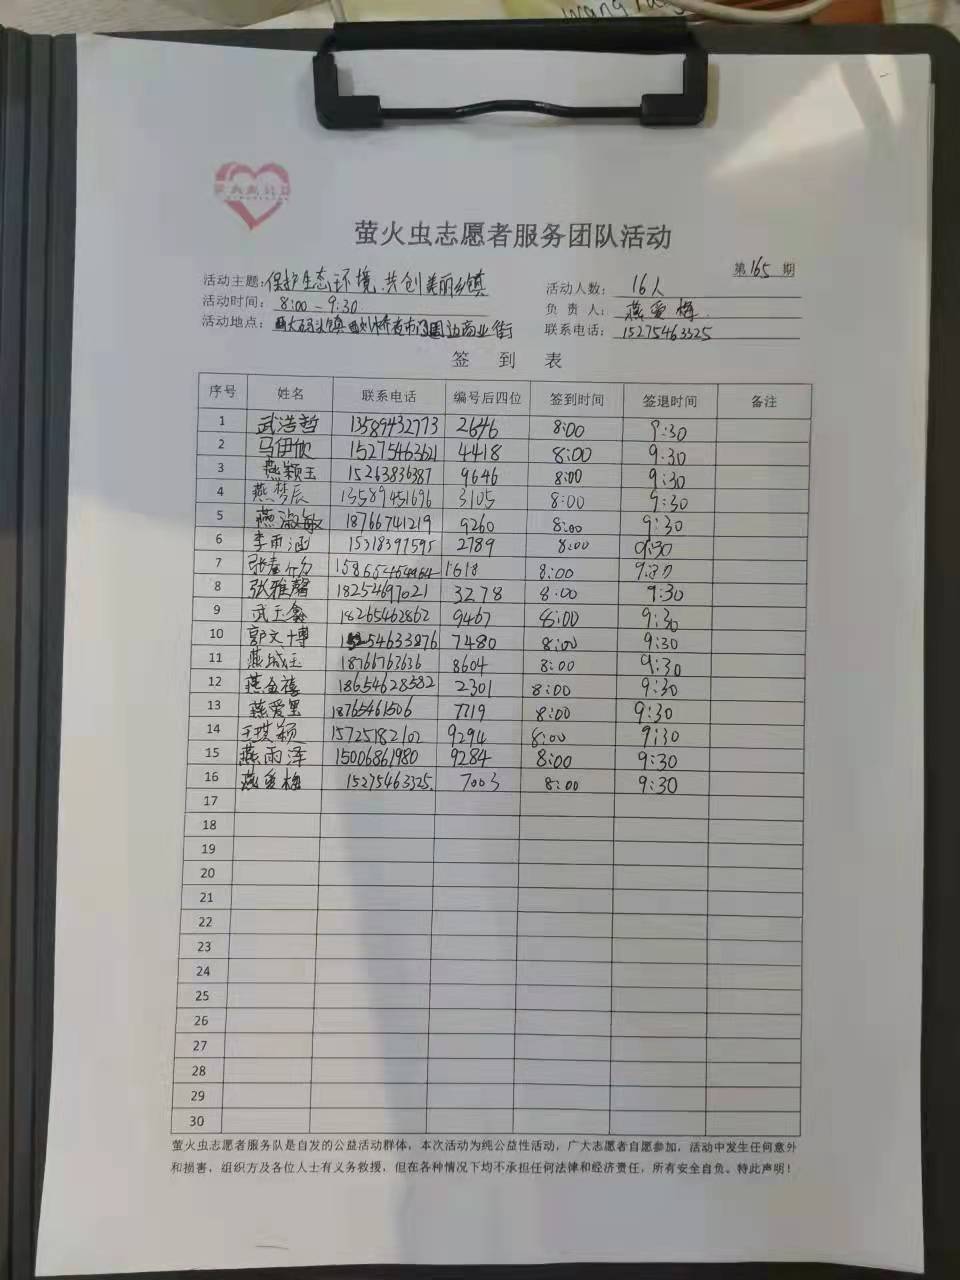 萤火虫志愿者服务团队活动
第165期
活动主题:保护生态环境.共创美丽乡镇 活动人数: 16人
活动时间: 8:00-9:30 负 责 人: 燕爱梅
活动地点: 镇 周边商业街 联系电话: 15275463325
签 到 表
序号 姓名 联系电话 编号后四位 签到时间 签退时间 备注
1 武浩哲 13589432773 2646 8:00 9:30
2 马伊欣 15275463621 4418 8:00 9:30
3 燕颖玉 15263836387 9646 8:00 9:30
4 燕梦辰 13589451696 3105 8:00 9:30
5 燕淑敏 18766741219 9260 8:00 9:30
6 李雨涵 15318397595 2789 8:00 9:30
7 1618 8:00 9:30
8 张雅馨 18254697021 3278 8:00 9:30
9 武玉鑫 18265462862 9467 8:00 9:30
10 郭文博 7480 8:00 9:30
11 燕城玉 18766763636 8604 8:00 9:30
12 燕金禧 18654628582 2301 8:00 9:30
13 燕爱黑 18765461506 7719 8:00 9:30
14 王琪颖 15725182102 9294 8:00 9:30
15 燕雨泽 15006861980 9284 8:00 9:30
16 燕爱梅 15275463325. 7003 8:00 9:30
17
18
19
20
21
22
23
24
25
26
27
28
29
30
萤火虫志愿者服务队是自发的公益活动群体，本次活动为纯公益性活动，广大志愿者自愿参加，活动中发生任何意外
和损害，组织方及各位人士有义务救援，但在各种情况下均不承担任何法律和经济责任，所有安全自负。特此声明！